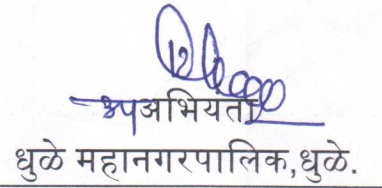 उपअभियता
धुळे महानगरपालिक,धुळे.